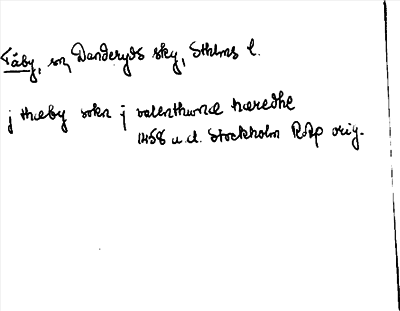 Täby, sn, Danderyds skg, Sthlms l.
j thæby sokn j valenthuna hæredhe
1458 u.d. Stockholm RAp orig.